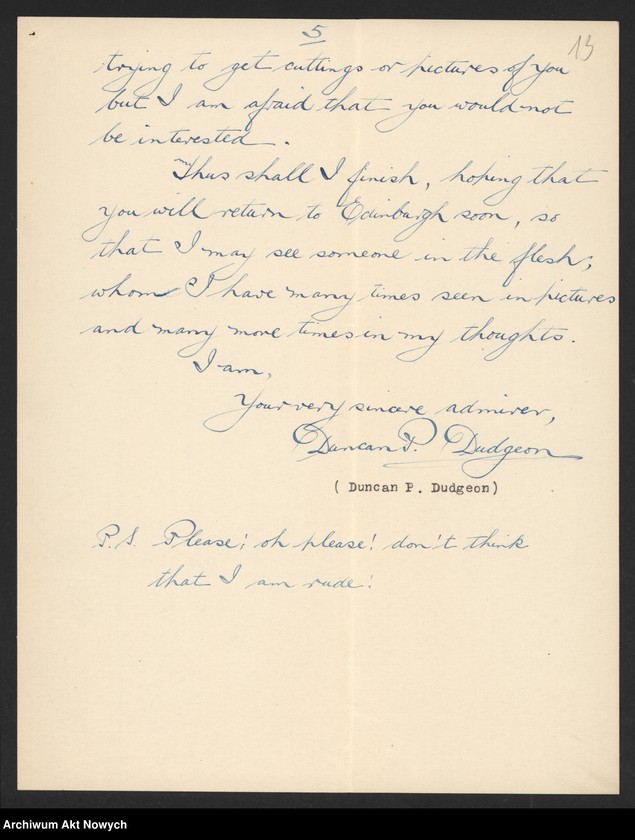 5
13
trying to get cuttings or pictures of you
but I am afraid that you would not
be interested.
Thus shall I finish, hoping that
you will return to Edinburgh soon, so
that I may see someone in the flesh,
whom I have many times seen in pictures
and many more times in my thoughts.
I am,
Your very sincere admirer,
Duncan P. Dudgeon
( Duncan P. Dudgeon)
P.S. Please! oh please! don't think
that I am rude!
Archiwum Akt Nowych